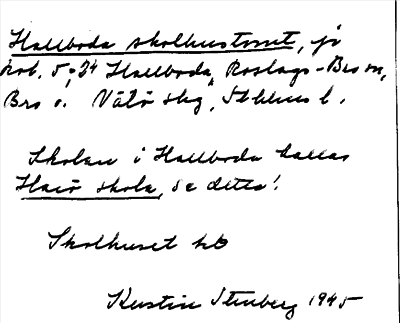 Hallboda skolhustomt, jo
kv. 5:34 Hallboda, Roslags-Bro sn,
Bro o. Vätö skg, Sthlms l.
Skolan i Hallboda kallas
Harö skola, se detta!
Skolhuset kb
Kerstin Stenberg 1945